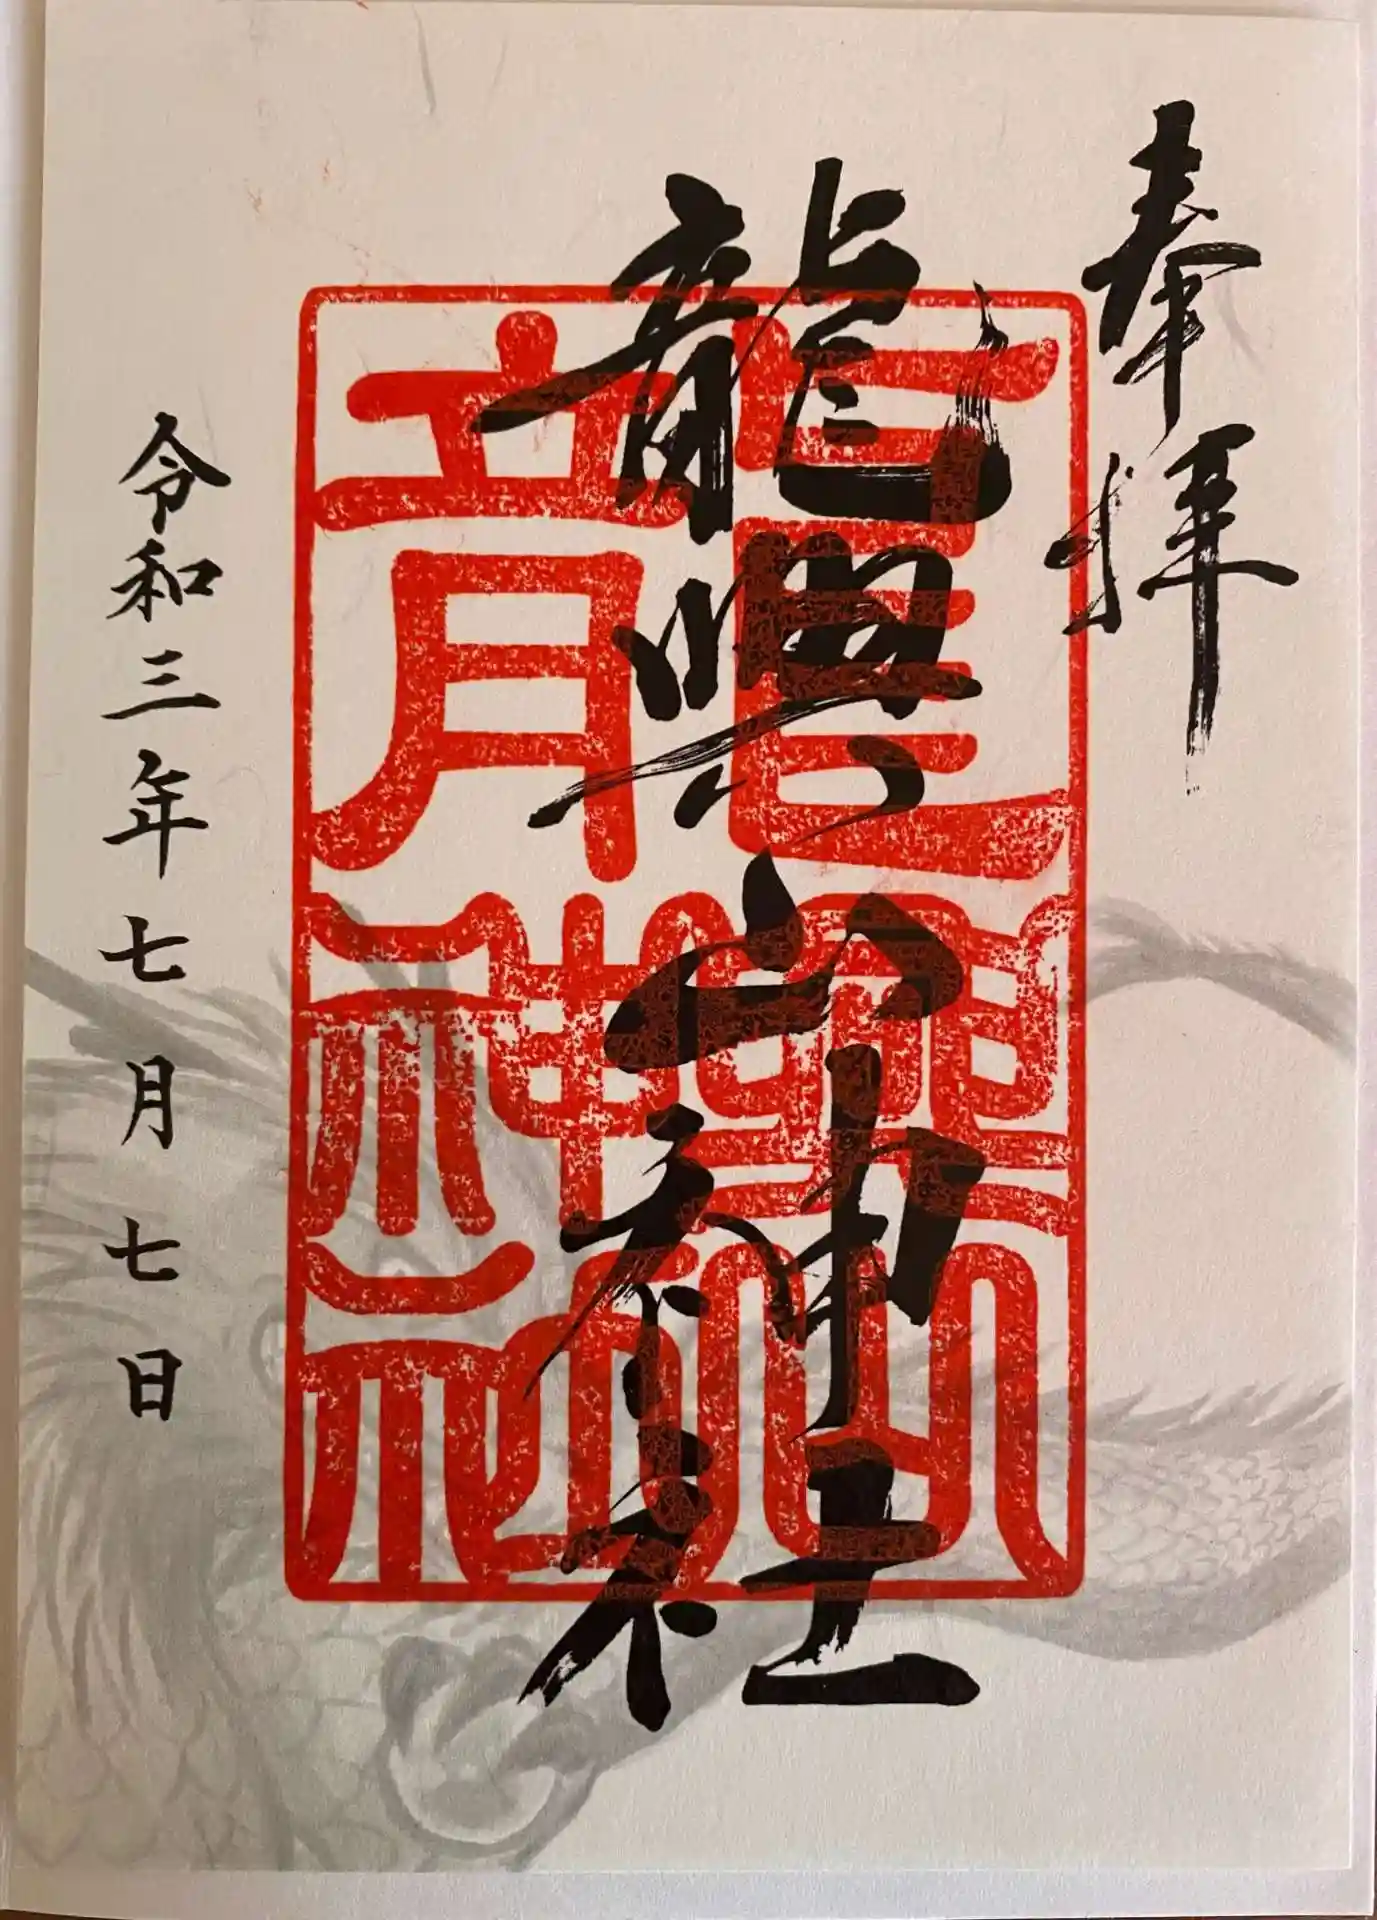 奉拝
龍興山神社
龍興山神社
令和三年七月七日